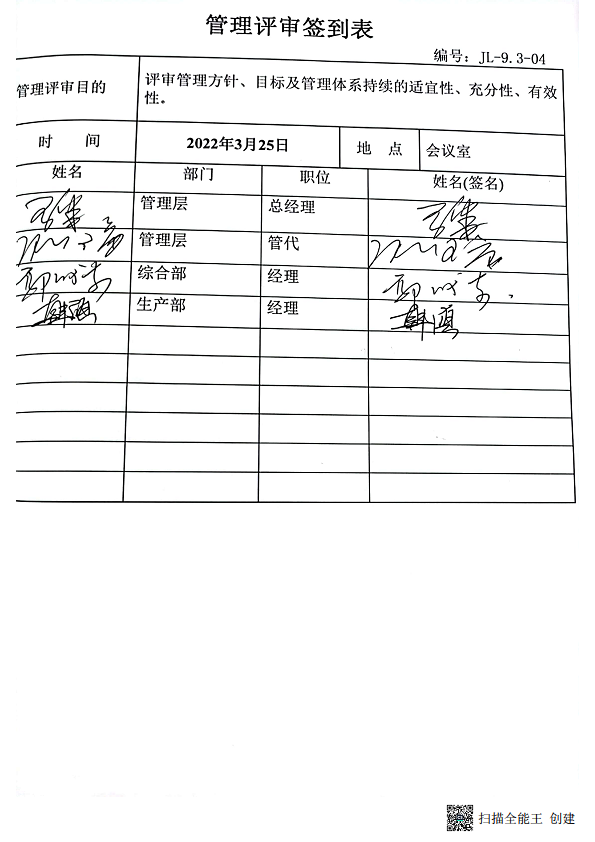 管理评审签到表
编号：JL-9.3-04
管理评审目的
评审管理方针、目标及管理体系持续的适宜性、充分性、有效
性。
时 间 2022年3月25日 地 点 会议室
姓名 部门 职位 姓名(签名)
管理层 总经理
管理层 管代
综合部 经理
生产部 经理
扫描全能王 创建